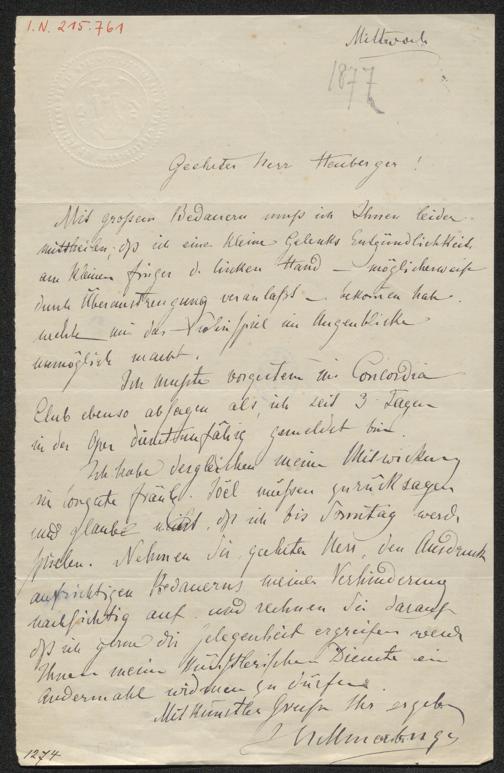 I.N. 215.761
Mittwoch
1877
Geehrter Herr Heuberger!
Mit großem Bedauern muß ich Ihnen leider
mittheilen, dß ich eine kleine Gelenks Entzündlichkeit
am kleinen finger d. linken Hand – möglicherweise
durch Überanstrengung veranlaßt – bekomen habe
welche mir das Violinspiel im Augenblicke
unmöglich macht.
Ich mußte vorgestern im Concordia
Club ebenso absagen als ich seit 3 Tagen
in der Oper dienstunfähig gemeldet bin.
Ich habe dergleichen meine Mitwirkung
im Conzerte Fräul. müssen zurücksagen
und glaube nicht, dß ich bis Sonntag werde
spielen. Nehmen Sie, geehrter Herr, den Ausdruck
aufrichtigen Bedauerns meiner Verhinderung
nachsichtig auf und rechnen Sie darauf
dß ich gerne die Gelegenheit ergreifen werde
Ihnen meine Künstlerischen Dienste ein
andermahl widmen zu dürfen.
Mit Künstler Gruße Ihr ergeb
1274